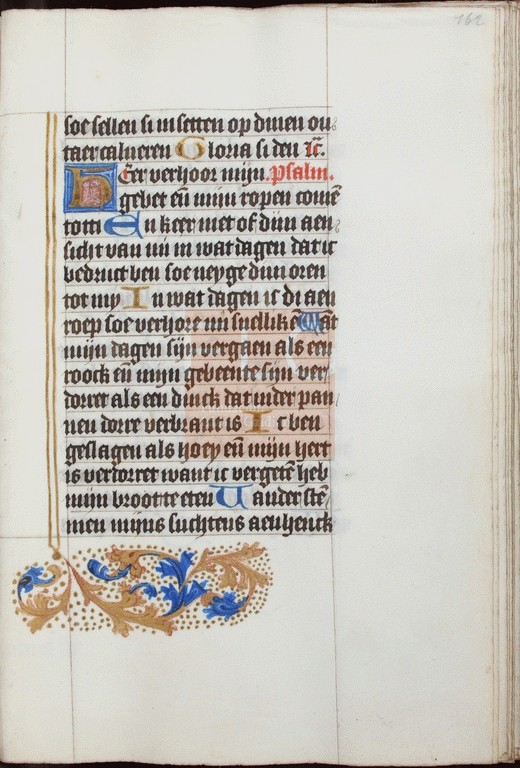 162
soe sellen si in setten op dinen ou
taer calueren Gloria si den ic.
Heer verhoor mijn Psalm.
gebet eñ mijn ropen come
tot ti En keer niet of dijn aen
sicht van mi in wat dagen dat ic
bedruct ben soe neyge dijn oren
tot my In wat dagen ic di aen
roep soe verhore mi snellikē Wāt
mijn dagen sijn vergaen als een
roock eñ mijn gebeente sijn ver
dorret als een dinck dat in der pan
nen dorre verbrant is Ic ben
geslagen als hoey eñ mijn hert
is verdorret want ic vergetē heb
mijn broot te eten Uander stē
men mijns suchtens aenhenck